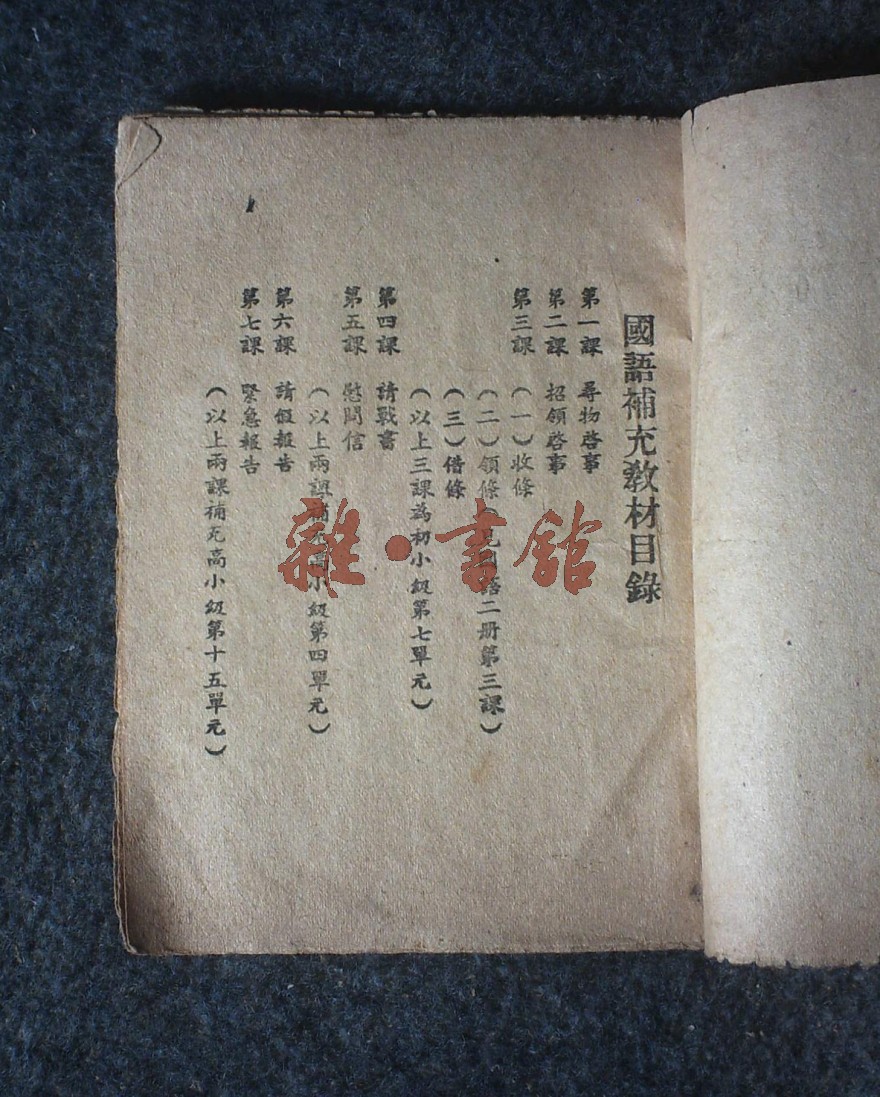 國語補充教材目錄
第一課 尋物啓事
第二課 招領啓事
第三課 (一)收條
(二)領條(見國語二册第三課)
(三)借條
(以上三課為初小級第七單元)
第四課 請戰書
第五課 慰問信
(以上兩課補充高小級第四單元)
第六課 請假報告
第七課 緊急報告
(以上兩課補充高小級第十五單元)
雜·書館